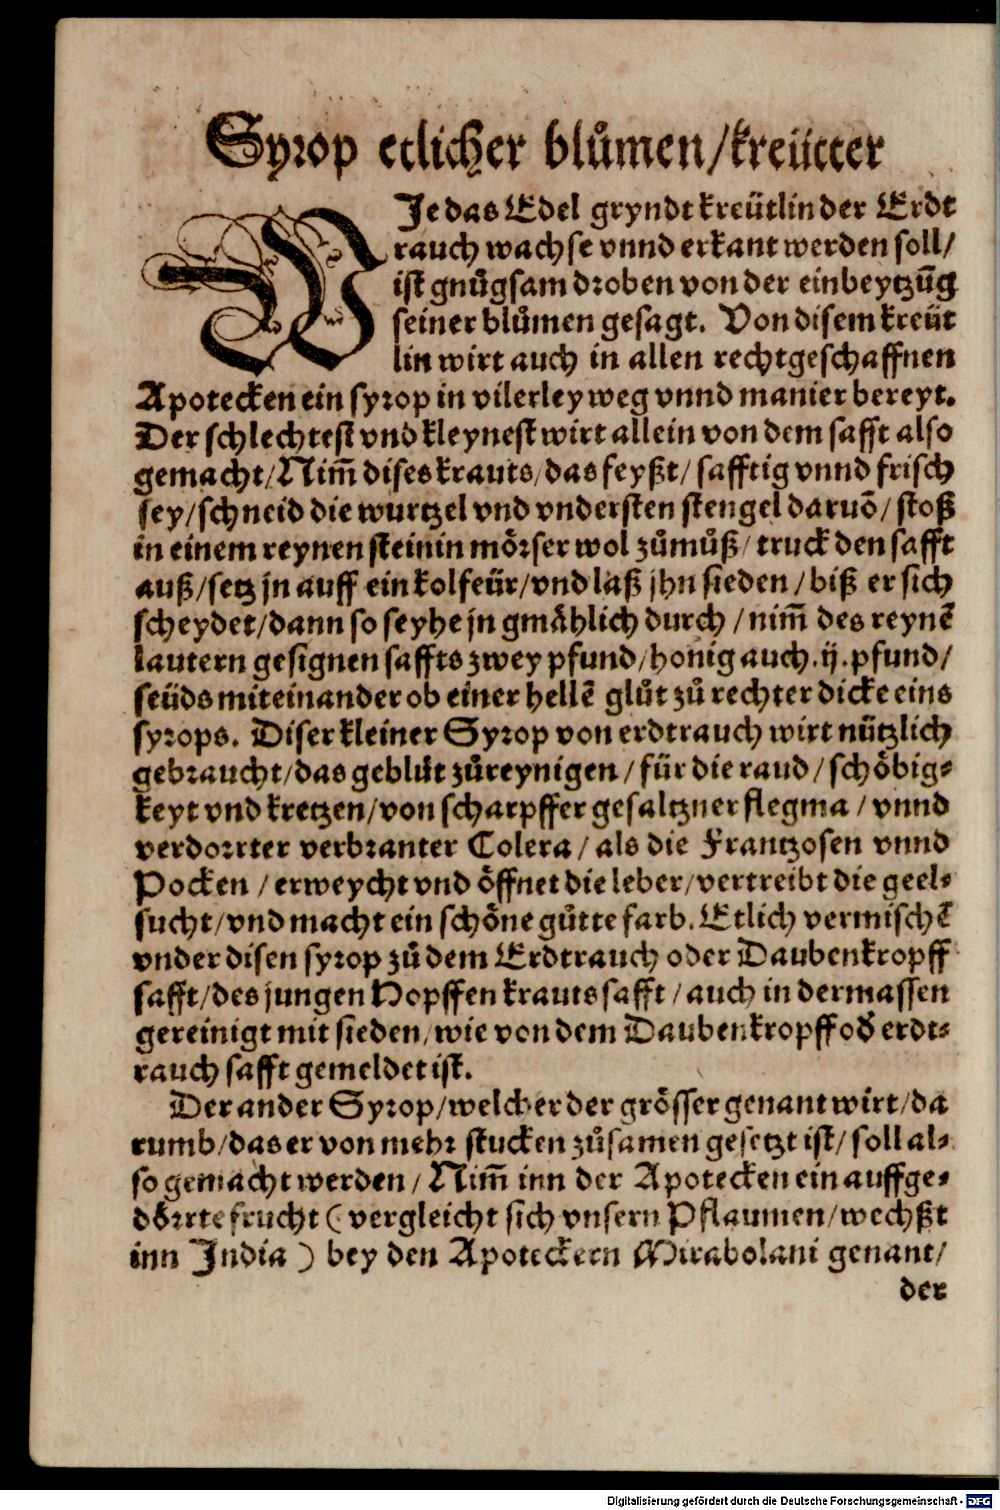 Syrop etlicher blůmen/kreütter
WJe das Edel gryndt kreütlin der Erdt
rauch wachse vnnd erkant werden soll/
ist gnůgsam droben von der einbeytzũg
seiner blůmen gesagt. Von disem kreüt
lin wirt auch in allen rechtgeschaffnen
Apotecken ein syrop in vilerley weg vnnd manier bereyt.
Der schlechtest vnd kleynest wirt allein von dem safft also
gemacht/Nim̃ dises krauts/das feyßt/safftig vnnd frisch
sey/schneid die wurtzel vnd vndersten stengel daruõ/stoß
in einem reynen steinin mörser wol zůmůß/truck den safft
auß/setz jn auff ein kolfeür/vnd laß jhn sieden/biß er sich
scheydet/dann so seyhe jn gmählich durch/nim̃ des reynẽ
lautern gesignen saffts zwey pfund/honig auch .ij. pfund/
seüds miteinander ob einer hellẽ glůt zů rechter dicke eins
syrops. Diser kleiner Syrop von erdtrauch wirt nützlich
gebraucht/das geblüt zůreynigen/für die raud/schöbig-
keyt vnd kretzen/von scharpffer gesaltzner flegma/vnnd
verdorrter verbranter Colera/als die Frantzosen vnnd
Pocken/erweycht vnd öffnet die leber/vertreibt die geel-
sucht/vnd macht ein schöne gůtte farb. Etlich vermischẽ
vnder disen syrop zů dem Erdtrauch oder Daubenkropff
safft/des jungen Hopffen krauts safft/auch in dermassen
gereinigt mit sieden/wie von dem Daubenkropff od̃ erdt-
rauch safft gemeldet ist.
Der ander Syrop/welcher der grösser genant wirt/da
rumb/das er von mehr stucken zůsamen gesetzt ist/soll al-
so gemacht werden/Nim̃ inn der Apotecken ein auffge-
dörrte frucht (vergleicht sich vnsern Pflaumen/wechßt
inn India) bey den Apoteckern Mirabolani genant/
der
Digitalisierung gefördert durch die Deutsche Forschungsgemeinschaft - DFG